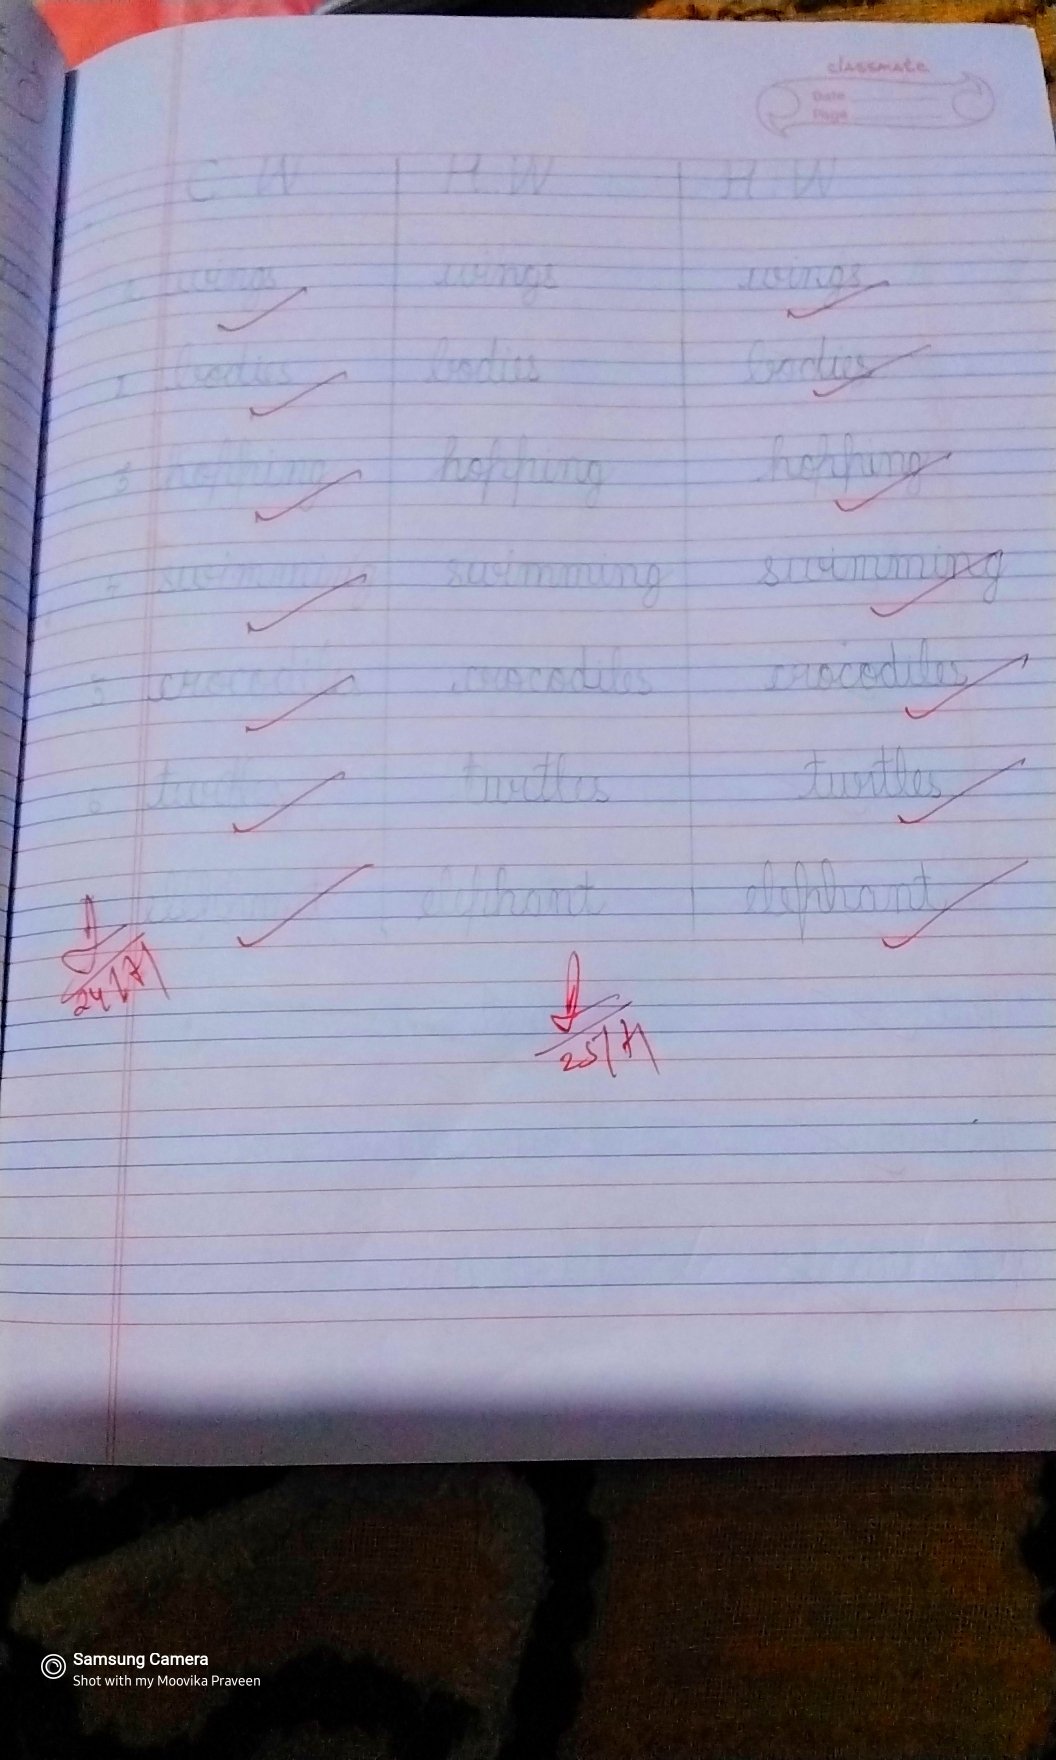 classmate
Date
Page
C.W H.W H.W
1 wings wings wings
2 bodies bodies bodies
3 hopping hopping hopping
4 swimming swimming swimming
5 crocodiles crocodiles
6 turtles turtles
elephant elephant
24/7/
25/7/
Samsung Camera
Shot with my Moovika Praveen